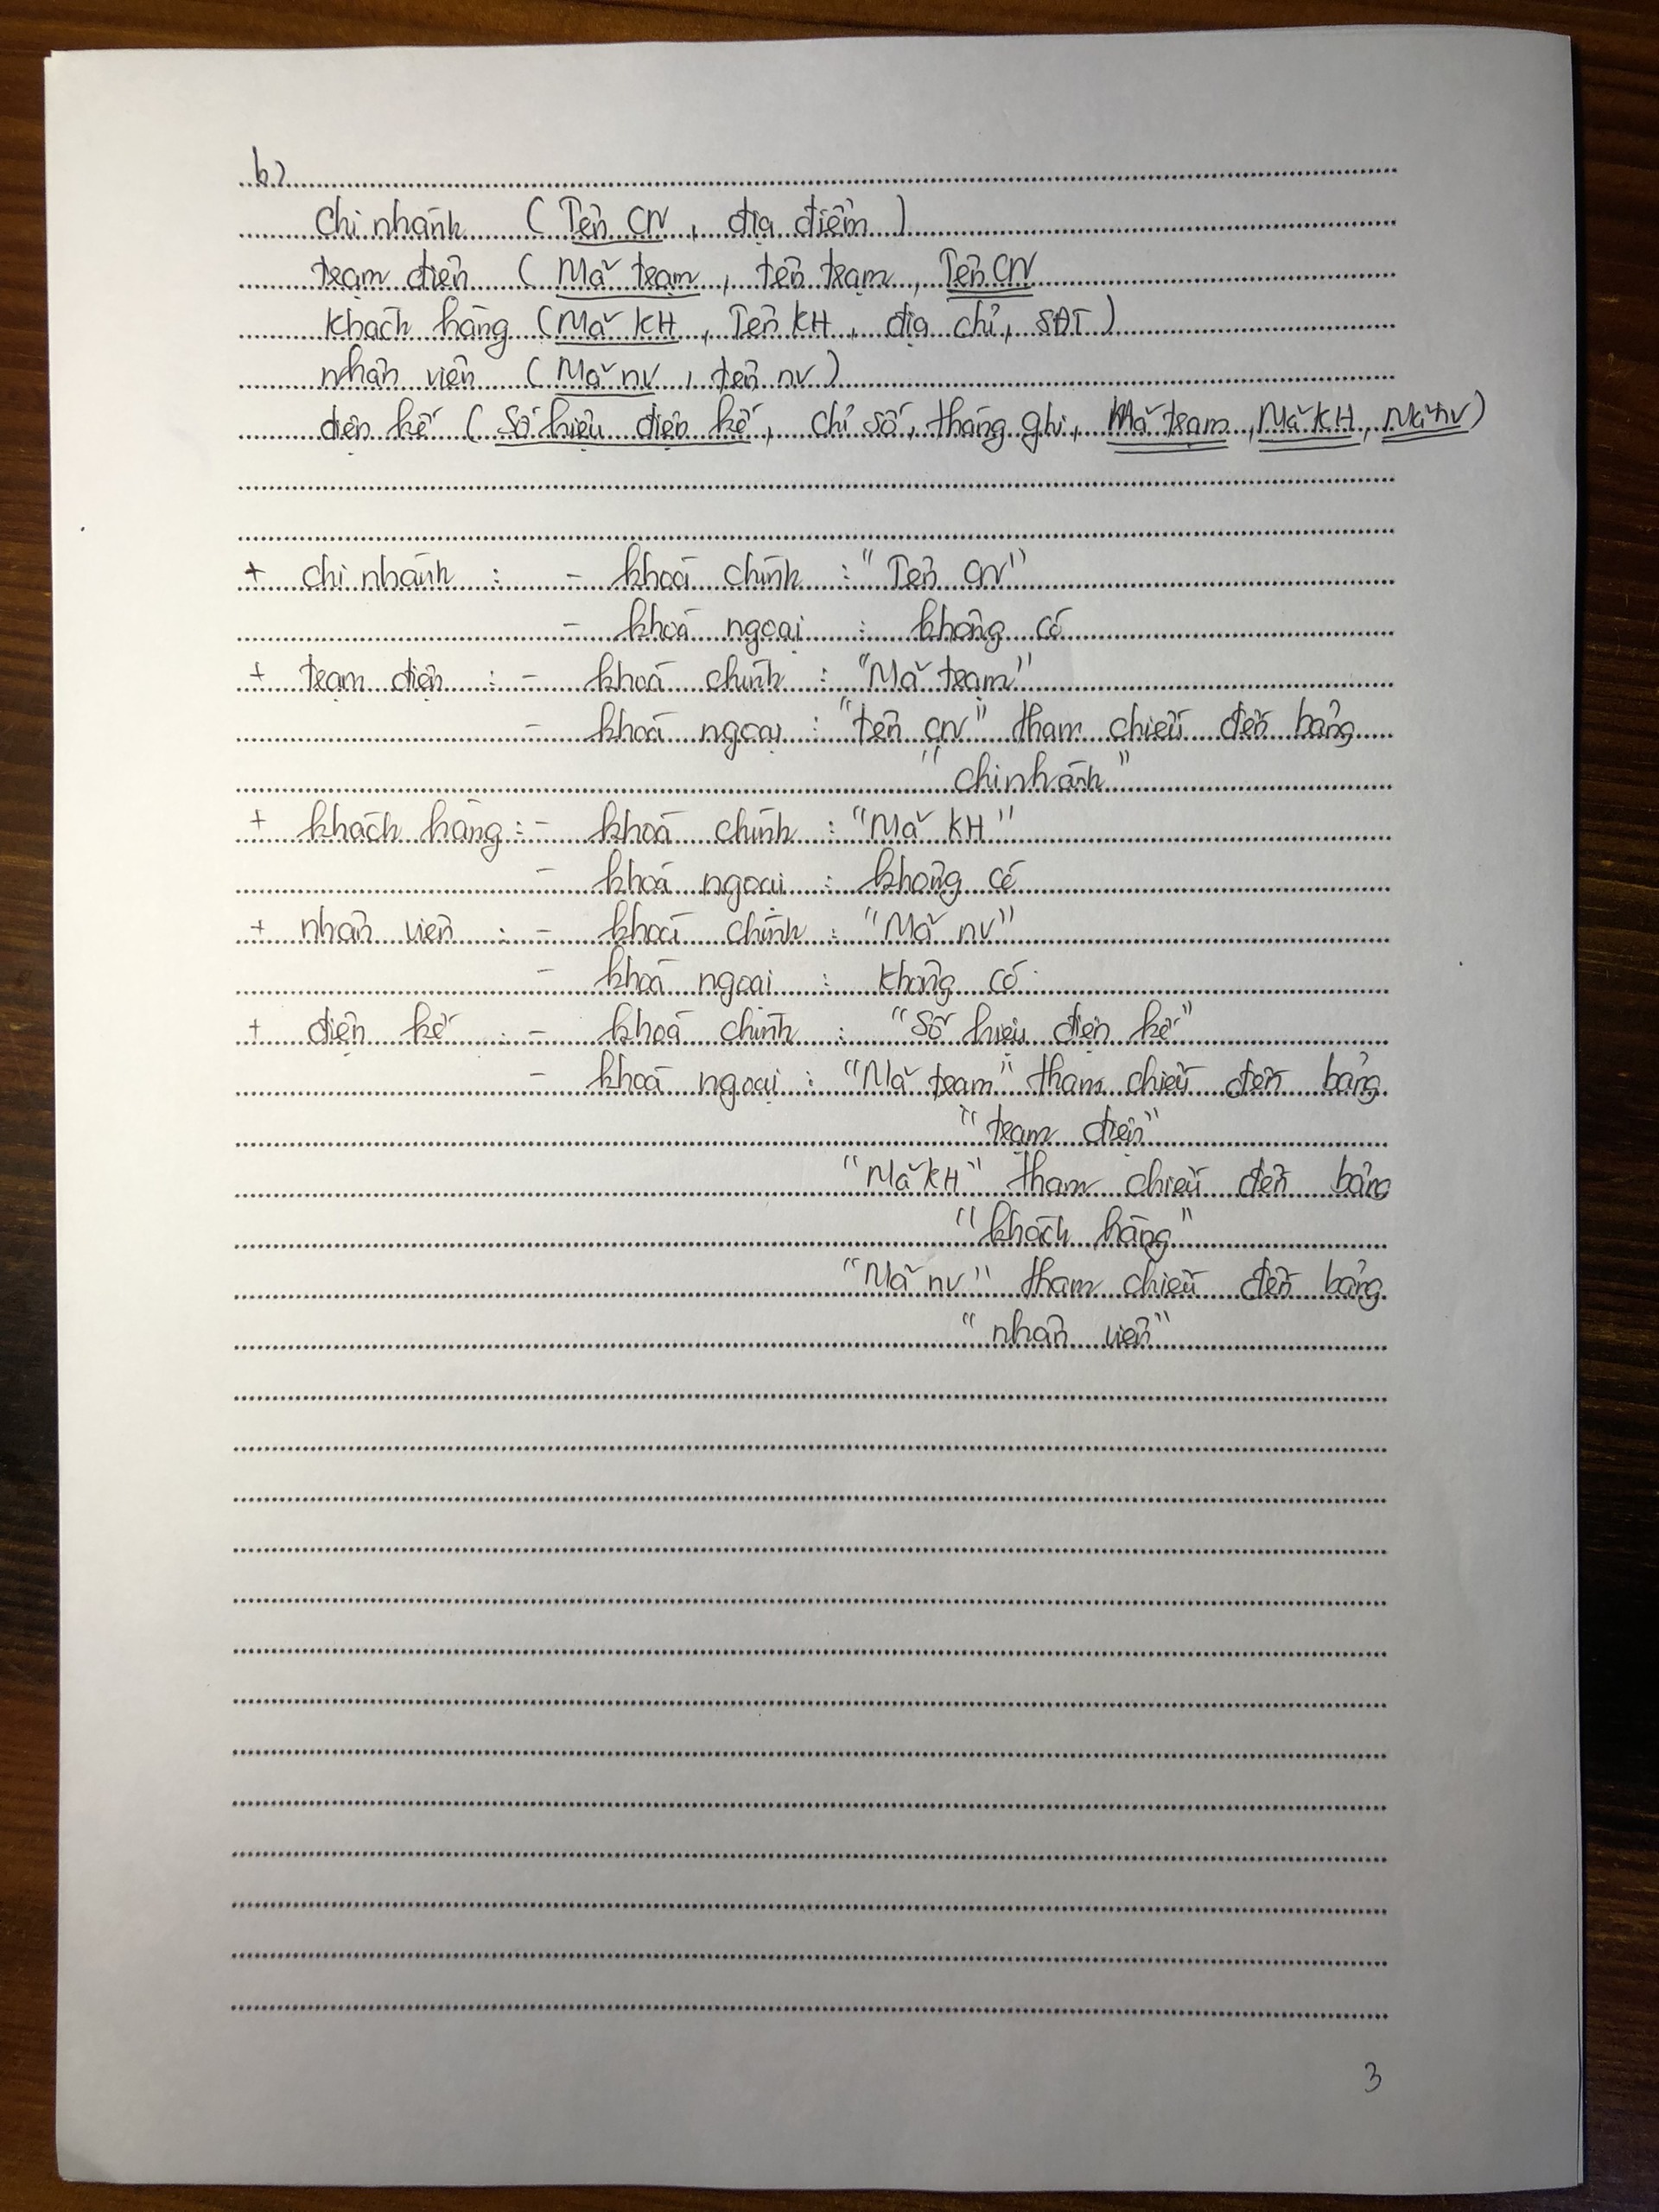 b)
Chi nhánh ( Tên CN, địa điểm )
trạm điện ( Mã trạm, tên trạm, Tên CN
Khách hàng (Mã KH, Tên KH, địa chỉ, SĐT )
nhân viên ( Mã nv, tên nv )
điện kế ( Số hiệu điện kế, chỉ số, tháng ghi, Mã trạm, Mã KH, Mã nv )
+ chi nhánh : - khoá chính : "Tên CN"
- khoá ngoại : không có
+ trạm điện : - khoá chính : "Mã trạm"
- khoá ngoại : "tên CN" tham chiếu đến bảng
"chi nhánh"
+ khách hàng : - khoá chính : "Mã KH"
- khoá ngoại : không có
+ nhân viên : - khoá chính : "Mã nv"
- khoá ngoại : không có
+ điện kế : - khoá chính : "Số hiệu điện kế"
- khoá ngoại : "Mã trạm" tham chiếu đến bảng
"trạm điện"
"Mã KH" tham chiếu đến bảng
"khách hàng"
"Mã nv" tham chiếu đến bảng
"nhân viên"
3